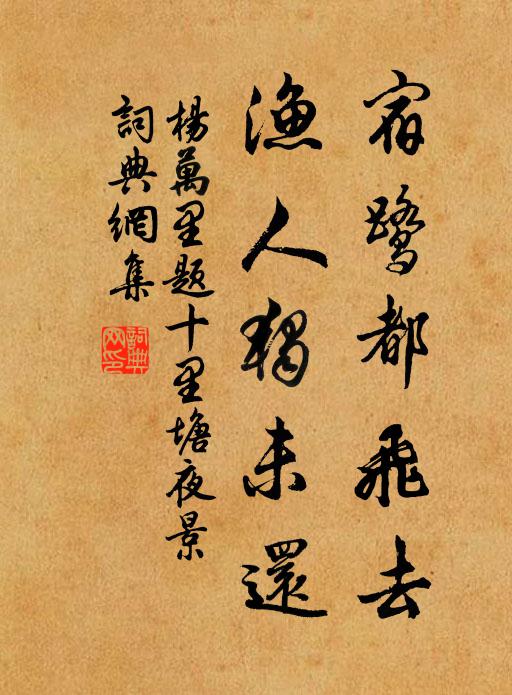 宿鹭都飛去
漁人獨未還
楊萬里題十里塘夜景
詞典網集
詞典网印